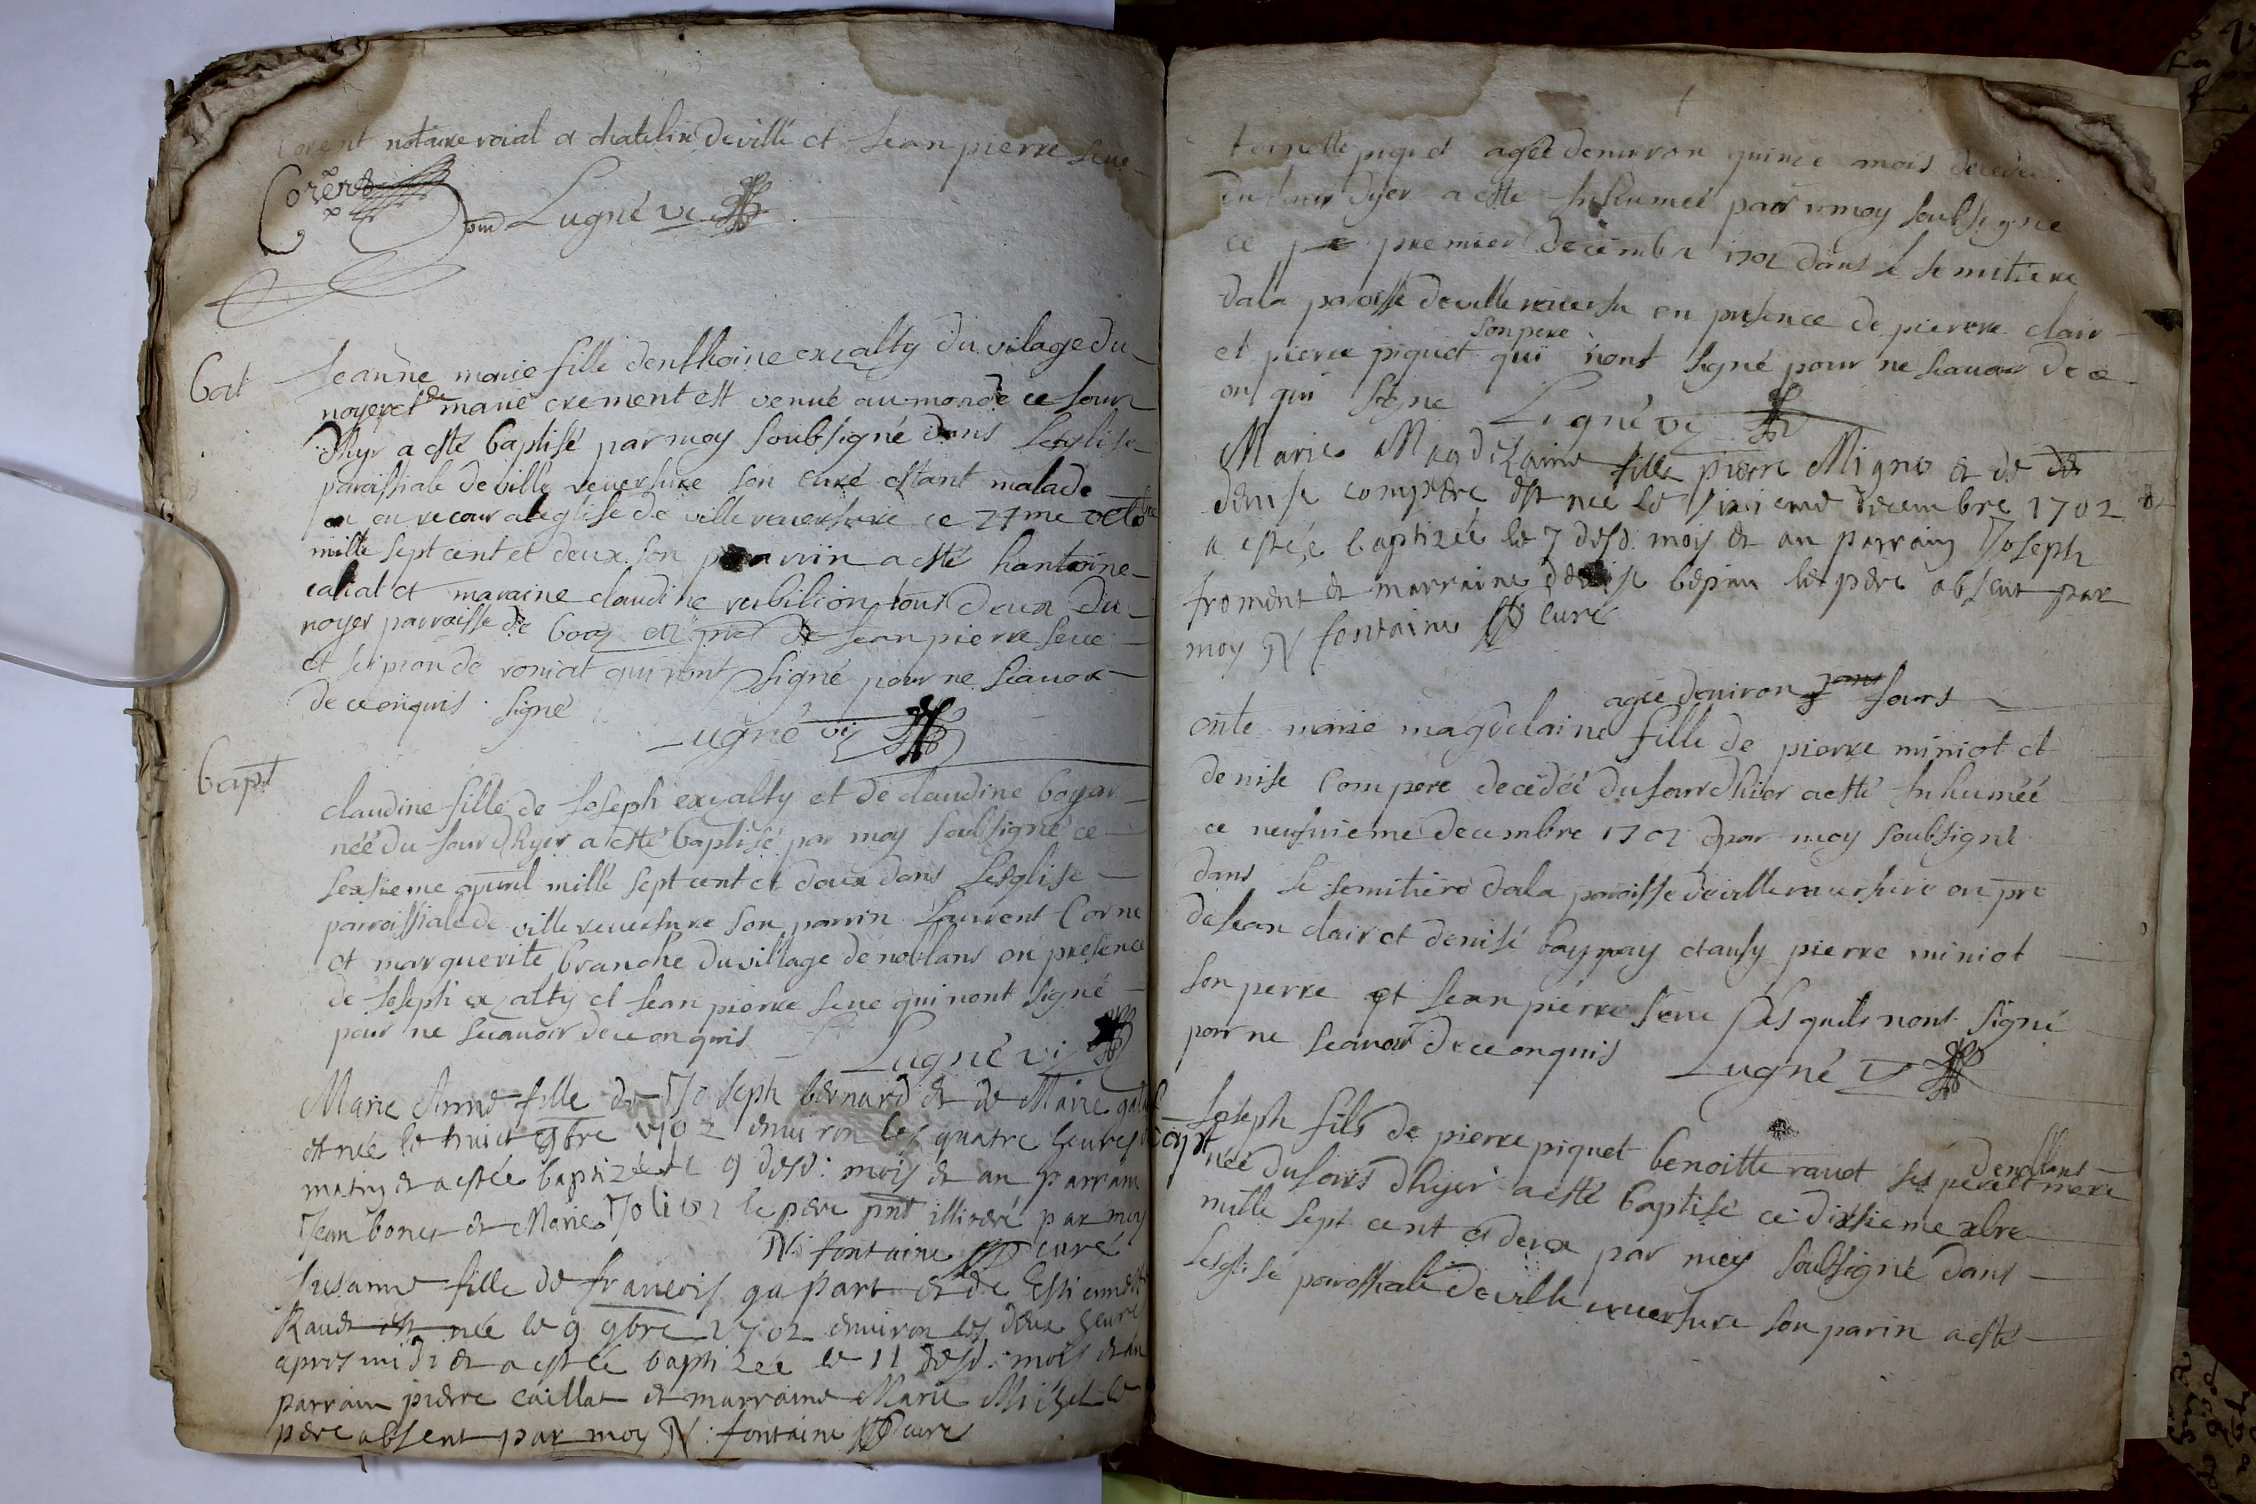 notaire roial et chatelin de ville et Jean pierre seue
Corent
Lugné vi
bat
Jeanne marie fille denthoine exxalty du vilage du
noyer et de marie crement est venue au monde ce Jour
dhyr a esté baptisé par moy soubsigné dans Leglise
paroissiale de ville reuersure son curé estant malade
on eu recour a leglise de ville reuersure ce 27me octobre
mille sept cent et deux son parrin a esté hantoine
calial et maraine claudine rebilion tous deux du
noyer parroisse de boaz en pnce de Jean pierre seue
et scipion de roniat qui nont signé pour ne scauoir
de ce enquis signé
Lugné vi
bapt
claudine fille de Joseph exxalty et de claudine bogar
née du Jour dhyer a esté baptisé par moy soubsigné ce
sexsieme mille sept cent et deux dans Lesglise
parroissiale de ville reuersure son parrin Laurent Corne
et marguerite branche du village de noblans en presence
de Joseph exxalty et Jean pierre seue qui nont signé
pour ne scauoir de ce enquis
Lugné vi
Marie Anne fille de Joseph bernard et de Marie
est née le huict 9bre 1702 enuiron les quatre heures de
matin et a estée baptizée le 9 desd: mois et an parrain
Jean bones et Marie le pere pnt illitere par moy
N: fontaine curé
Susanne fille de francois gapart et de Estiennette
Raudt est née le 9 9bre 1702 enuiron les deux heure
apres midi et a estée baptizée le 11 desd: mois et an
parrain pierre caillat et marraine Marie Michel le
pere absent par moy N: fontaine curé
toinette piquet agée denuiron quince mois decedée
du Jour dyer a esté Inhumée par moy soubsigne
ce premier decembre 1702 dans le semitiere
dala paroisse de ville reuersure en presence de pierre clair
son pere
et pierre piquet qui nont signé pour ne scauoir de ce
enquis signe
Lugné vi
Marie Magdelaine fille pierre Mignot et de
denise compere est née le sixieme decembre 1702 et
a estée baptizée le 7 desd. mois et an parrain Joseph
froment et marraine denise bepin le pere absent par
moy N fontaine curé
agée denuiron 3 Jours
marie magdelaine fille de pierre miniot et
denise Compere decedée du Jour dhier a esté Inhumée
ce neufuieme decembre 1702 par moy soubsigné
dans le semitiere dala paroisse de ville reuersure en pnce
de Jean clair et denise baynay et ausy pierre miniot
son perre et Jean pierre seue Les quels nont signé
pour ne scauoir de ce enquis
Lugné vi
bapt
Joseph fils de pierre piquet benoitte rauet ses pere et mere
de noblans
née du Jour dhyer a esté baptisé ce dixsieme xbre
mille sept cent et deux par moy soubsigné dans
Lesglise paroissiale de ville reuersure son parin a esté